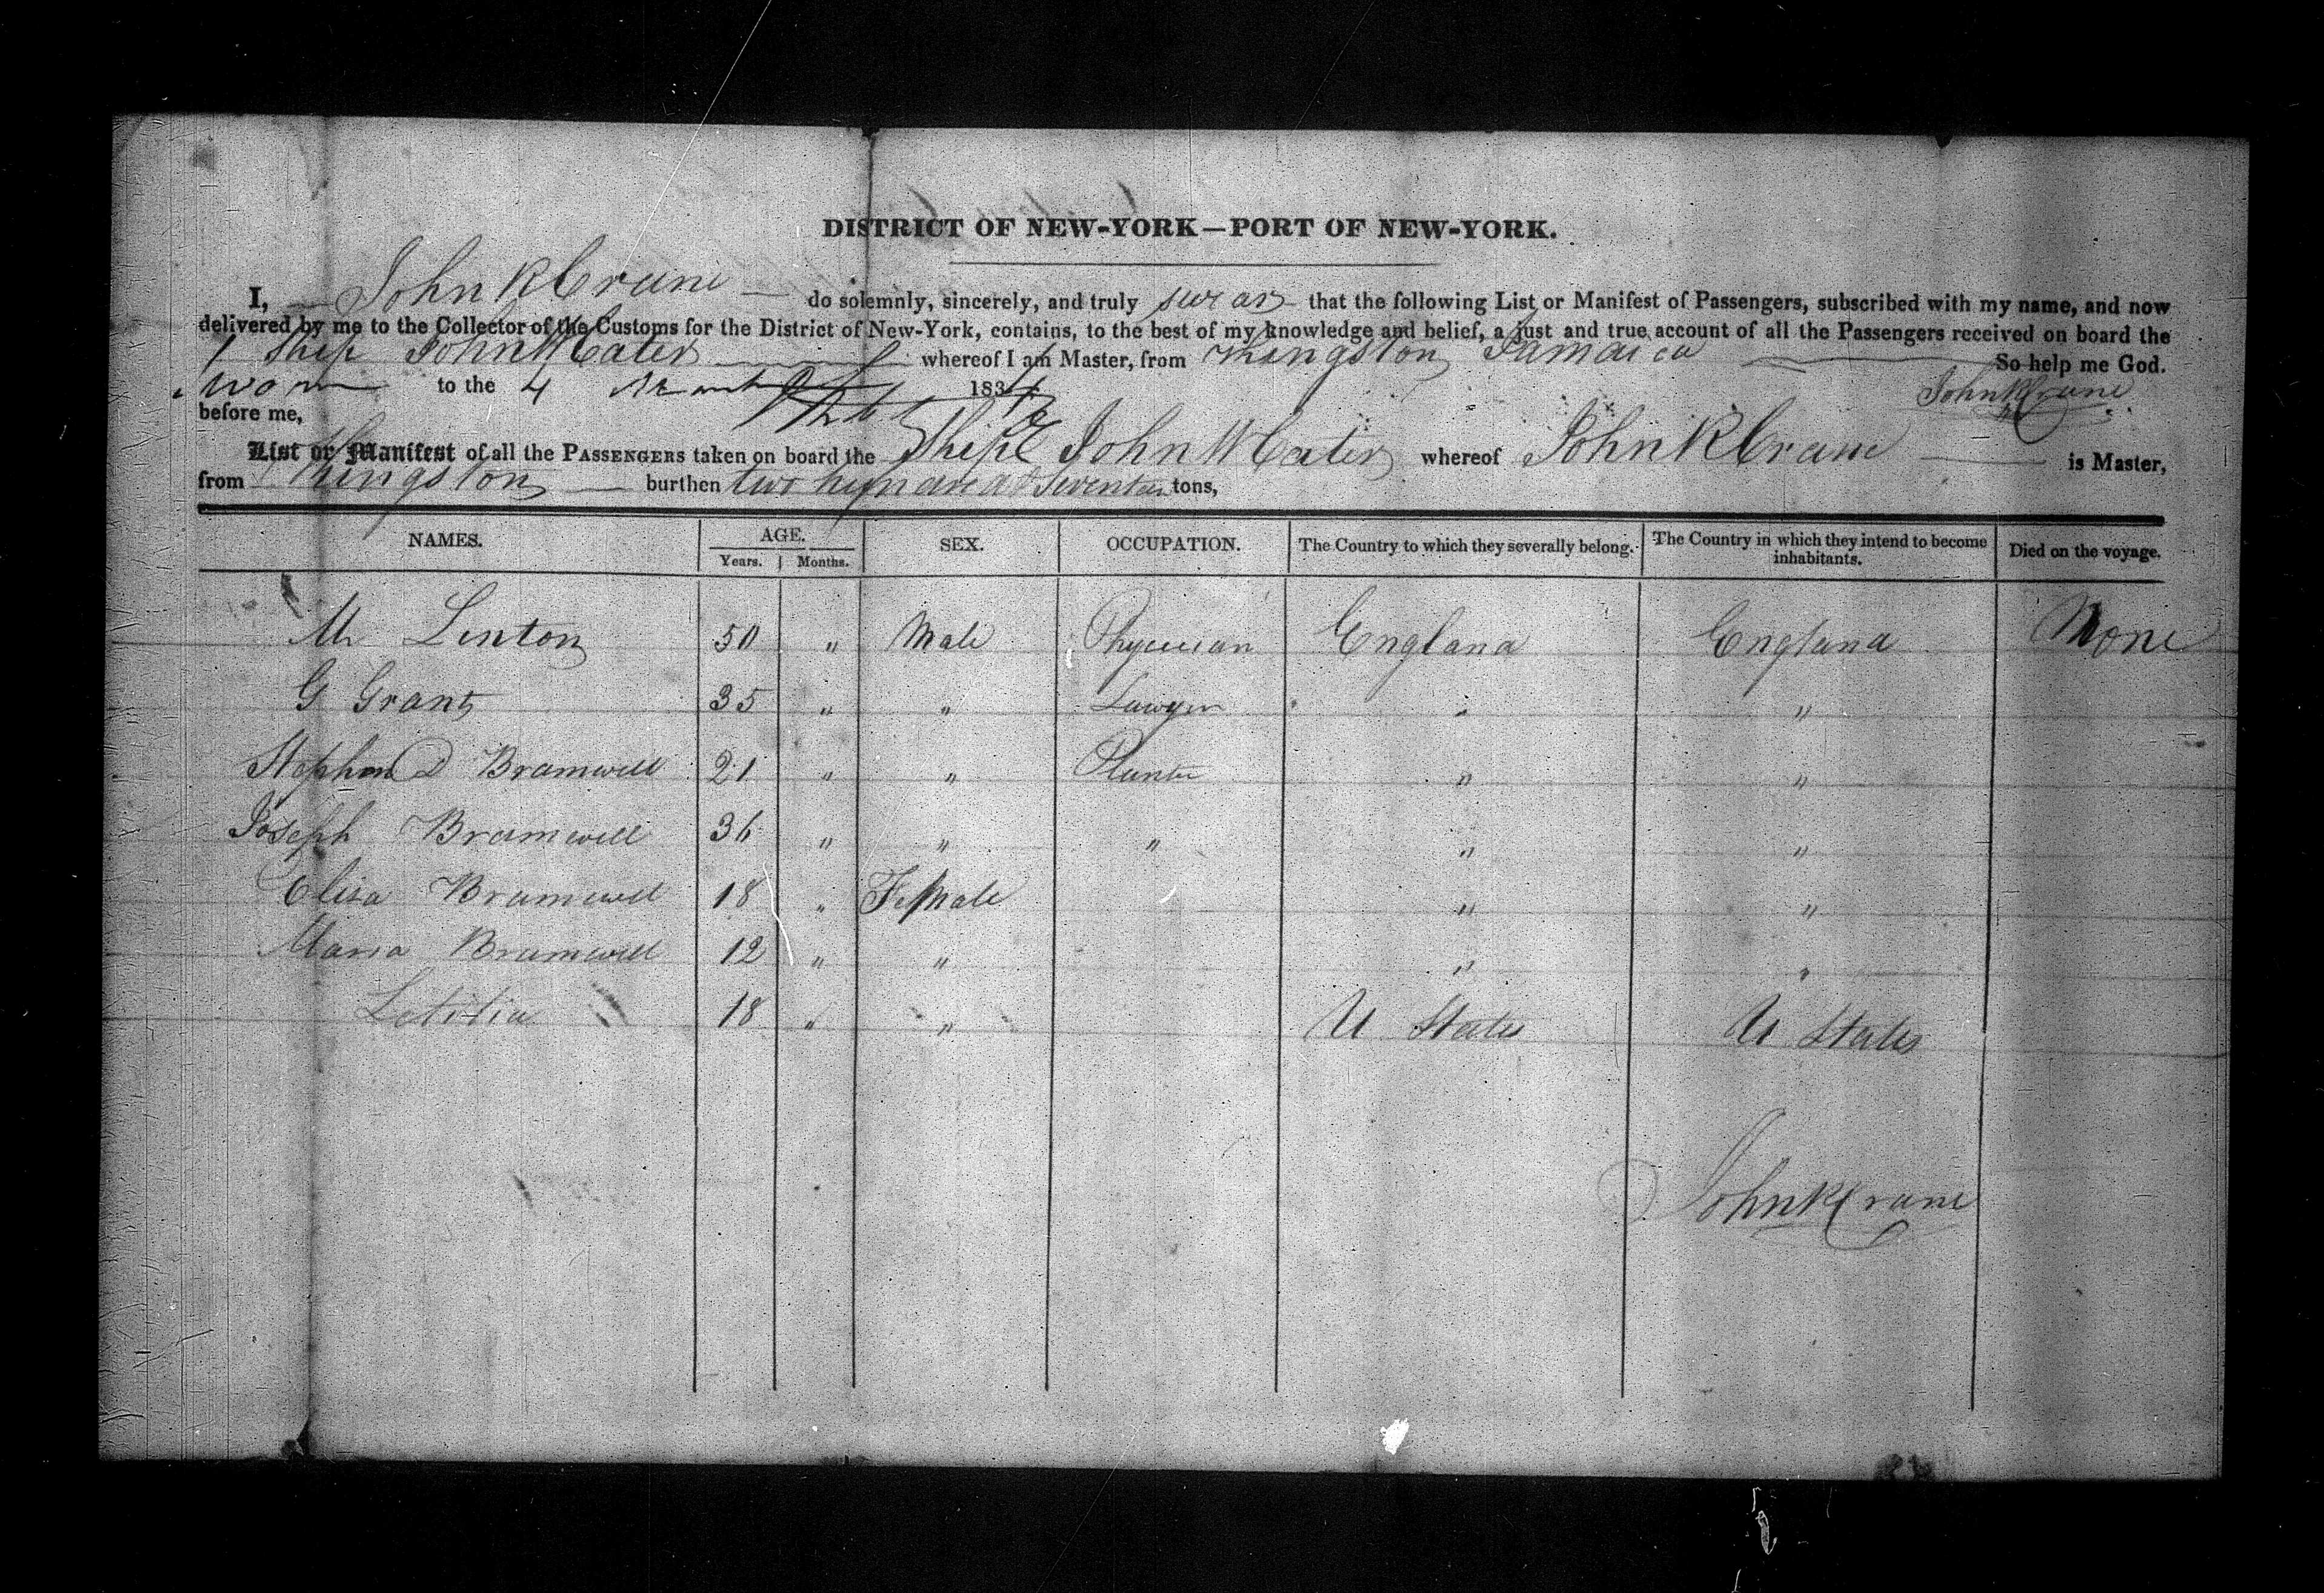 DISTRICT OF NEW-YORK—PORT OF NEW-YORK.
I, John R Crane do solemnly, sincerely, and truly swear that the following List or Manifest of Passengers, subscribed with my name, and now
delivered by me to the Collector of the Customs for the District of New-York, contains, to the best of my knowledge and belief, a just and true account of all the Passengers received on board the
Ship John W Cater whereof I am Master, from Kingston Jamaica So help me God.
Sworn to the 4 183 John R Crane
before me,
List or Manifest of all the PASSENGERS taken on board the Ship John W Cater whereof John R Crane is Master,
from Kingston burthen two hundred & seventeen tons,
NAMES. AGE. SEX. OCCUPATION. The Country to which they severally belong. The Country in which they intend to become inhabitants. Died on the voyage.
Years. Months.
Mr Linton 50 " Male Physician England England None
G Grant 35 " " Lawyer " "
Stephen D Bramwell 21 " " Planter " "
Joseph Bramwell 36 " " " " "
Eliza Bramwell 18 " Female " "
Maria Bramwell 12 " " " "
Letitia 18 " " U States U States
John R Crane